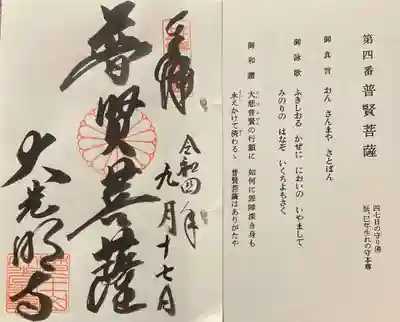 第四番 普賢菩薩
四七日の守り佛
辰、巳年生れの守本尊
御真言 おん さんまや さとばん
御詠歌 ふきしおる かぜに においの いやまして、
みのりの はなぞ いくちよもさく
御和讃 大慈普賢の行願に 如何に罪障深き身も
永えかけて済わるゝ 普賢菩薩はありがたや
奉拝
令和四年
九月十七日
普賢菩薩
大光明寺